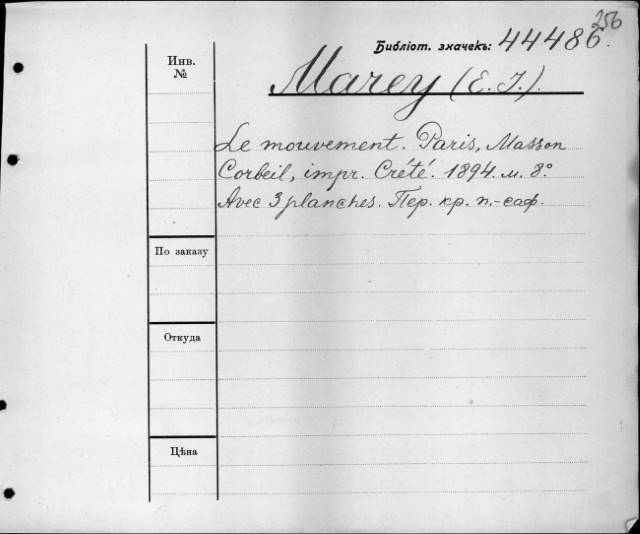 256
Библіот. значекъ: 44486.
Инв.
№
Marey (E. J.).
Le mouvement. Paris, Masson
Corbeil, impr. Crété. 1894. м. 8°
Avec 3 planches. Пер. кр. п.-саф.
По заказу
Откуда
Цѣна